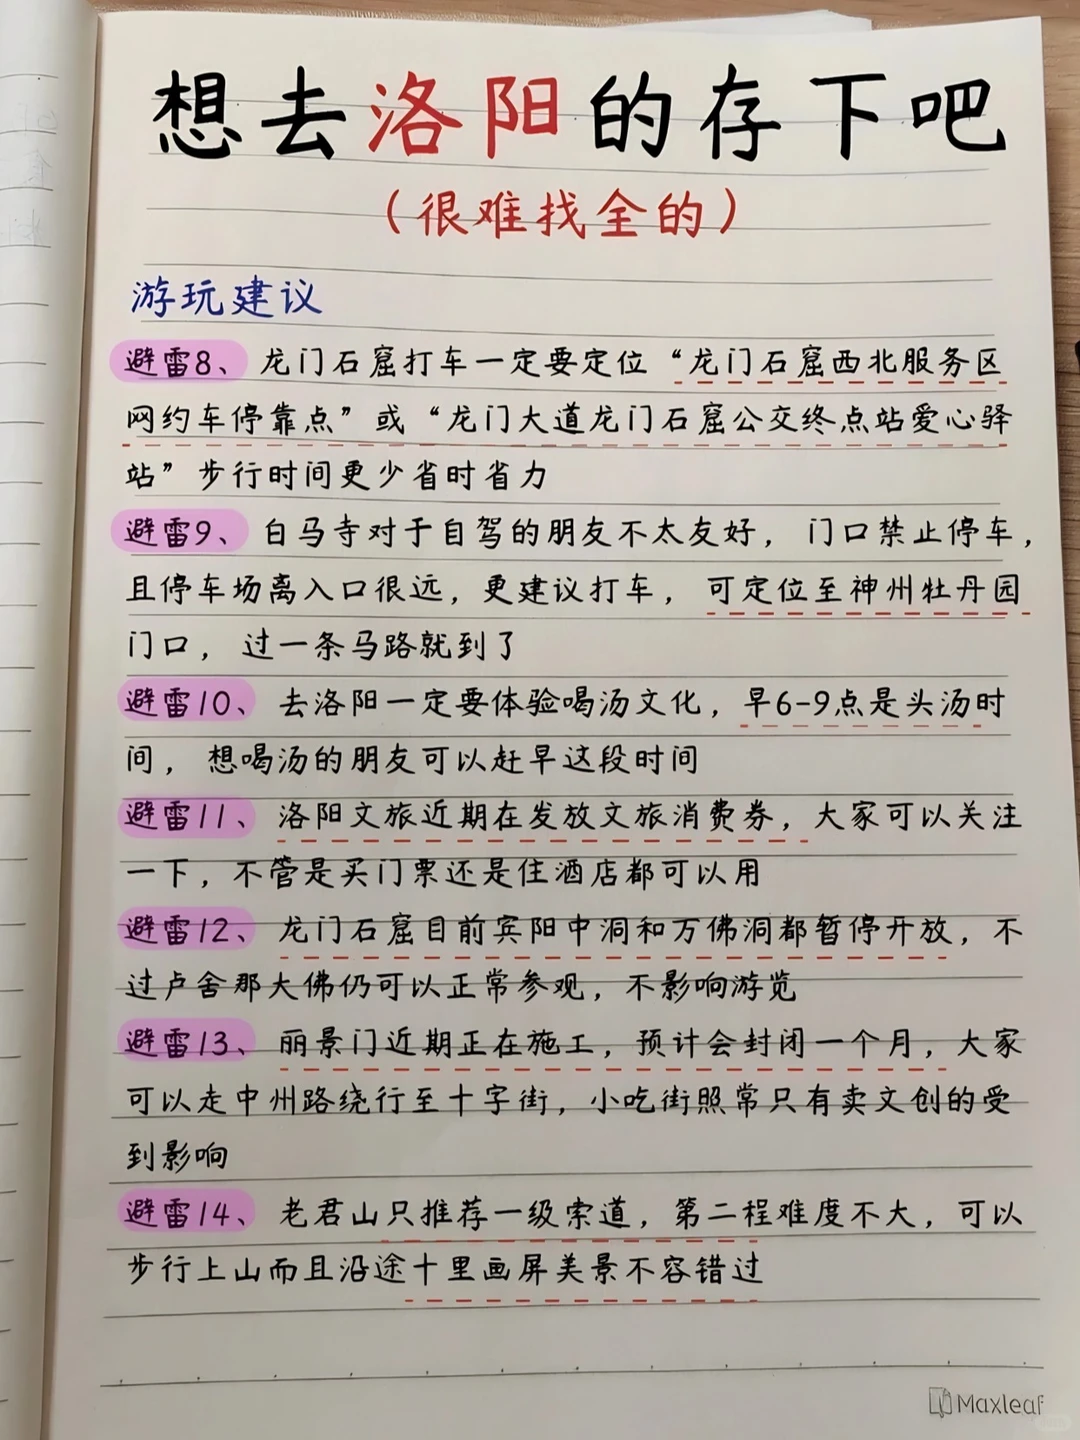 想去洛阳的存下吧
（很难找全的）
游玩建议
避雷8、龙门石窟打车一定要定位“龙门石窟西北服务区
网约车停靠点”或“龙门大道龙门石窟公交终点站爱心驿
站”步行时间更少省时省力
避雷9、白马寺对于自驾的朋友不太友好，门口禁止停车，
且停车场离入口很远，更建议打车，可定位至神州牡丹园
门口，过一条马路就到了
避雷10、去洛阳一定要体验喝汤文化，早6-9点是头汤时
间，想喝汤的朋友可以赶早这段时间
避雷11、洛阳文旅近期在发放文旅消费券，大家可以关注
一下，不管是买门票还是住酒店都可以用
避雷12、龙门石窟目前宾阳中洞和万佛洞都暂停开放，不
过卢舍那大佛仍可以正常参观，不影响游览
避雷13、丽景门近期正在施工，预计会封闭一个月，大家
可以走中州路绕行至十字街，小吃街照常只有卖文创的受
到影响
避雷14、老君山只推荐一级索道，第二程难度不大，可以
步行上山而且沿途十里画屏美景不容错过
Maxleaf